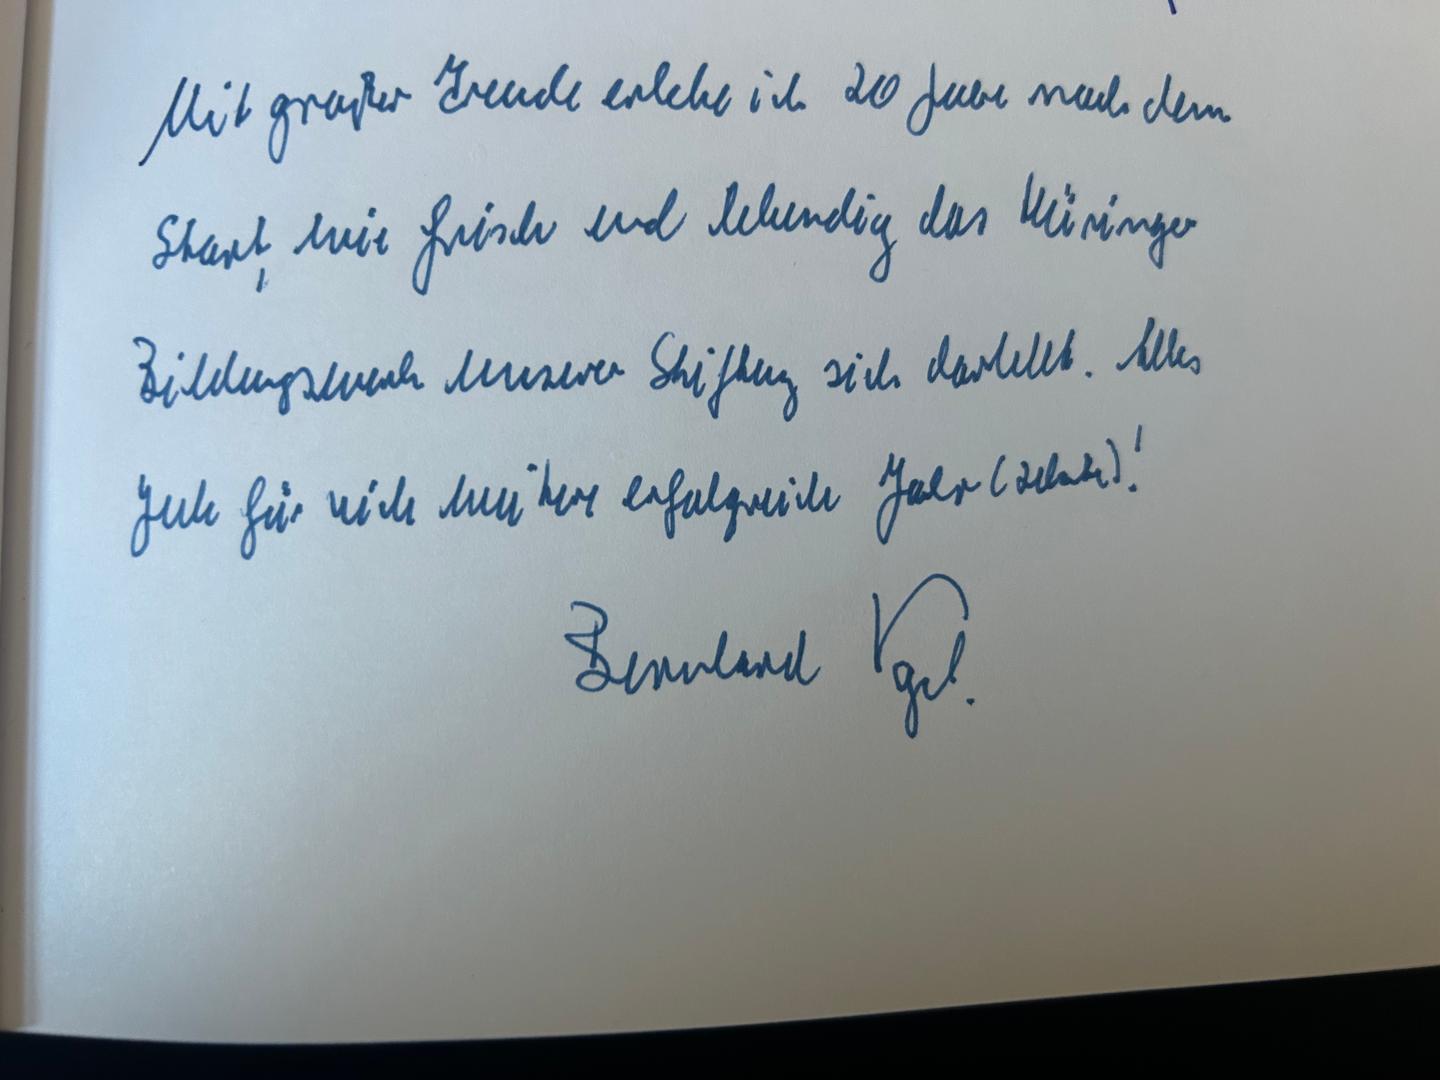 Mit großer Freude erlebe ich 20 Jahre nach dem
Start, wie frisch und lebendig das Thüringer
Bildungswerk unserer Stiftung sich darstellt. Alles
Gute für viele weitere erfolgreiche Jahr(zehnte)!
Bernhard Vogel.